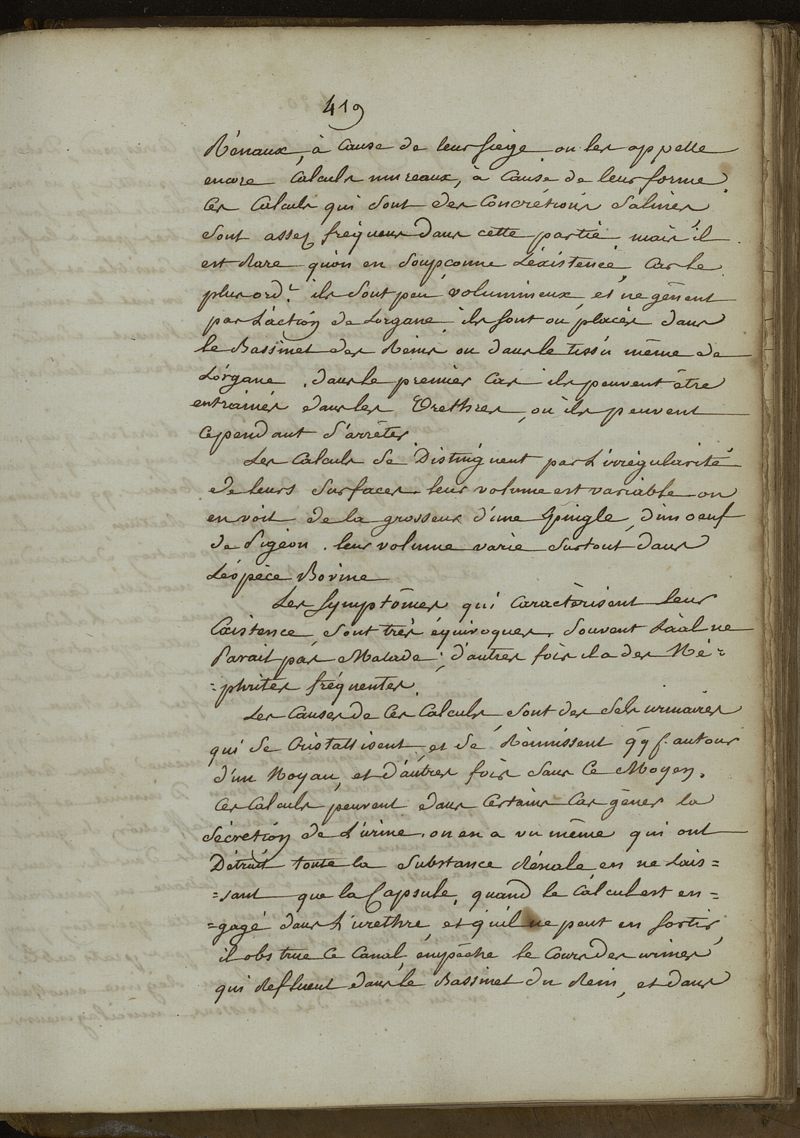 419
Rénaux, à cause de leur siège on les appelle
encore Calculs mureaux, à Cause de leur forme
Ces Calculs qui sont des Concrétions Salines
sont assez fréquens dans cette partie mais il
est Rare qu'on en soupconne L'éxistence, Car le
plus ord.t ils sont peu volumineux, et ne gênent
pas L'action de Lorgane, ils sont ou placés dans
le Bassinet des Reins ou dans le tissu même de
L'órgane, dans le premier Cas ils peuvent être
entrainés dans les Urethres, ou ils peuvent
cependant S'arrêter.
Les Calculs se Distinguent par L'irrégularité
de leurs surfaces. leur volume est variable on
en voit de la grosseur d'une Epingle, d'un oeuf
de Pigeon. leur volume varie surtout dans
L'éspèce Bovine
Les Symptômes qui Caractèrisent leur
Existence sont très équivoques, Souvent L'al ne
Parait pas Malade; d'autres fois il a des Né=
=phrites fréquentes.
Les Causes de Ces Calculs, sont des sels urinaires
qui se Cristallisent, et se Réunissent qq f. autour
d'un Noyau, et d'autres fois sans Ce Noyau.
Ces Calculs peuvent dans Certains Cas gêner la
Sécrétion de L'urine, on en a vu même qui ont
Détruit toute la substance Rénale en ne Lais=
=sant que la Capsule, quand le Calcul est en=
=gagé dans L'urethre, et qu'il ne peut en sortir
il obstrue Ce Canal, empêche le Cours des urines
qui Refluent dans le Bassinet du Rein, et dans